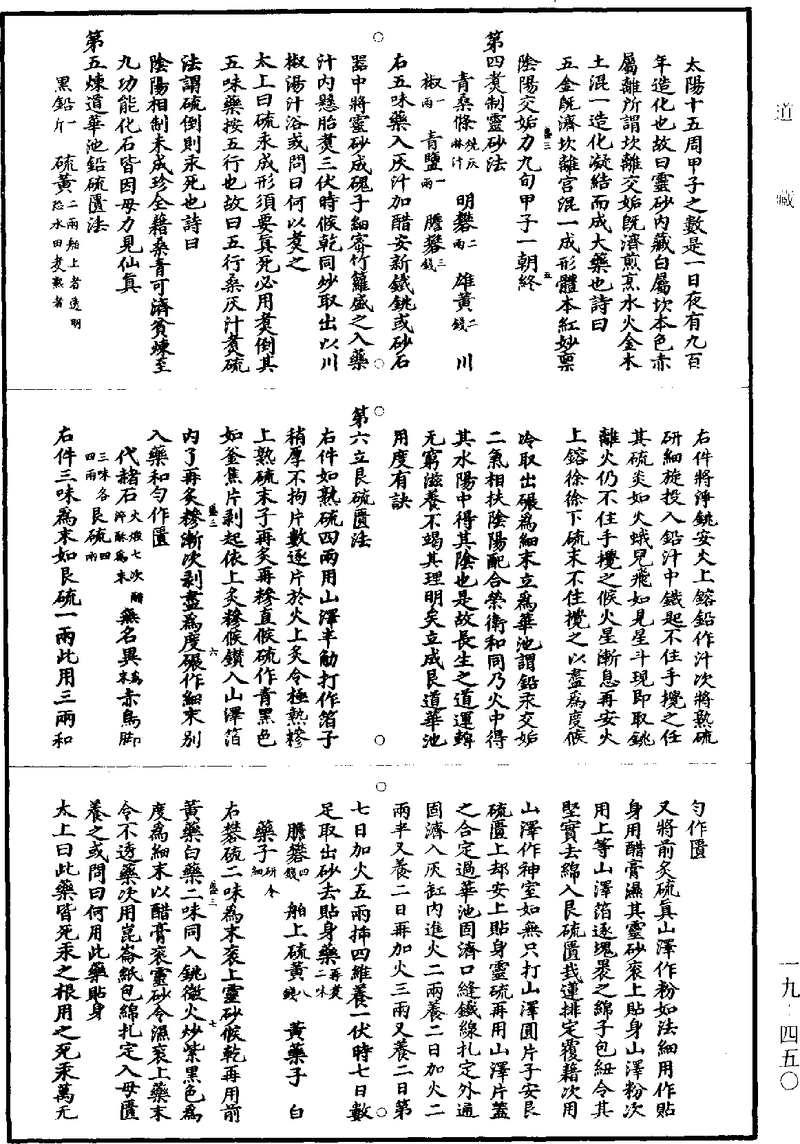 道藏
太陽十五周甲子之數是一日夜有九百
年造化也故曰靈砂内藏白屬坎本色赤
屬離所謂坎離交姤旣濟煎烹水火金木
土混一造化凝結而成大藥也詩曰
五金旣濟坎離宮混一成形體本紅妙稟
盛三 五
陰陽交姤力九旬甲子一朝終
第四煑制靈砂法
青桑條燒灰淋汁 明礬二兩 雄黃二錢 川
椒一兩 青鹽一兩 膽礬三錢
右五味藥入灰汁加醋安新鐵銚或砂石
器中將靈砂成塊子細密竹籮盛之入藥
汁内懸胎煑三伏時候乾同炒取出以川
椒湯汁浴或問曰何以煑之
太上曰硫汞成形須要真死必用煑倒其
五味藥按五行也故曰五行桑灰汁煑硫
法謂硫倒則汞死也詩曰
陰陽相制未成珍全藉桑青可濟貧煉至
九功能化石皆因母力見仙真
第五煉道華池鉛硫匱法
黑鉛一斤 硫黃二兩舶上者透明恐水田煑熟者
右件將淨銚安火上鎔鉛作汁次將熟硫
研細旋投入鉛汁中鐵起不住手攪之任
其硫炎如火蛾兒飛如見星斗現即取銚
離火仍不住手攪之候火星漸息再安火
上鎔徐徐下硫末不住攪之以盡爲度候
冷取出碾爲細末立爲華池謂鉛汞交姤
二氣相扶陰陽配合榮衛和同乃火中得
其水陽中得其陰也是故長生之道運轉
无窮滋養不竭其理明矣立成艮道華池
用度有訣
第六立艮硫匱法
右件如熟硫四兩用山澤半觔打作箔子
稍厚不拘片數逐片於火上炙令極熱糝
上熟硫末子再炙再糝直候硫作青黑色
如釜焦片剥起依上炙糝候鑚入山澤箔
盛三 六
内了再炙糝漸次剥盡爲度碾作細末别
入藥和勻作匱
代赭石火煅七次醋淬酥爲末 無名異爲末 赤烏脚三味各四兩 艮硫四兩
右件三味爲末如艮硫一兩此用三兩和
勻作匱
又將前炙硫真山澤作粉如法細用作貼
身用醋膏濕其靈砂衮上貼身山澤粉次
用上等山澤箔逐塊褁之綿子包紐令其
堅實去綿入艮硫匱栽蓮排定覆藉次用
山澤作神室如無只打山澤圓片子安艮
硫匱上却安上貼身靈硫再用山澤片蓋
之合定過華池固濟口縫鐵線扎定外通
固濟入灰缸内進火二兩養二日加火二
兩半又養二日再加火三兩又養二日第
七日加火五兩揷四維養一伏時七日數
足取出砂去貼身藥再煑二味
膽礬四錢 舶上硫黃八錢 黃藥子 白
藥子研細
右礬硫二味爲末衮上靈砂候乾再用前
盛三 七
黃藥白藥二味同入銚微火炒紫黑色爲
度爲細末以醋膏衮靈砂令濕衮上藥末
令不透藥次用崑崙紙包綿扎定入母匱
養之或問曰何用此藥貼身
太上曰此藥皆死汞之根用之死汞萬无
一九·四五〇